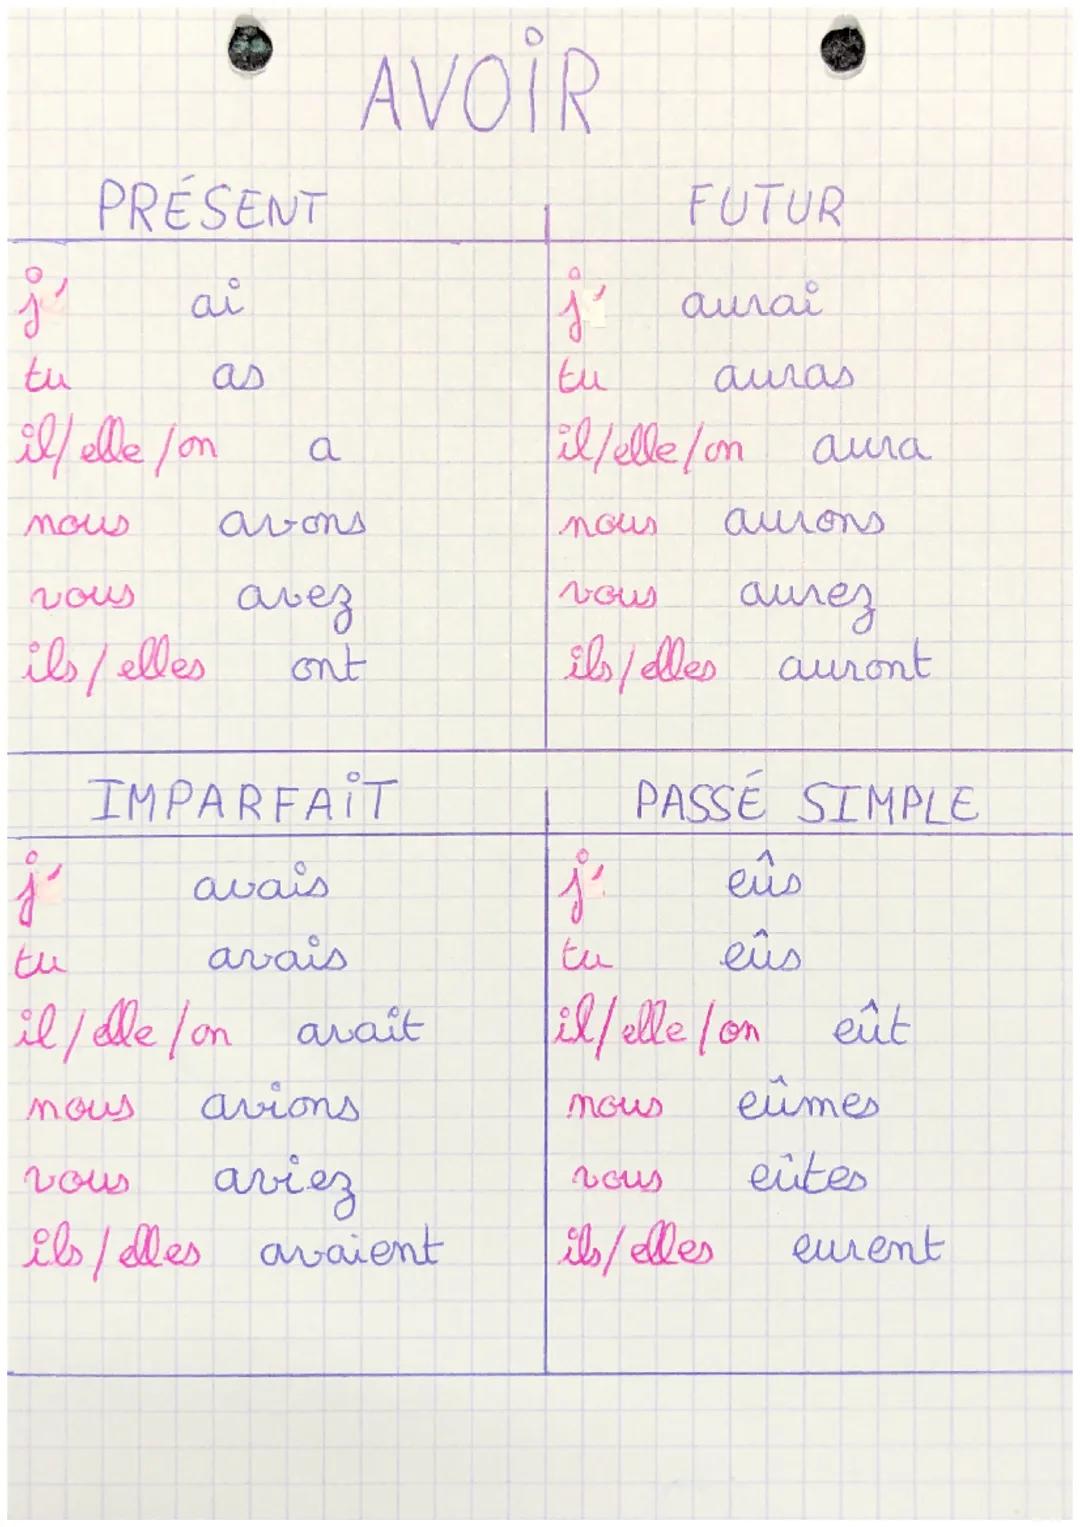 AVOIR
PRÉSENT
j' ai
tu as
il/elle/on a
nous avons
vous avez
ils/elles ont
FUTUR
j' aurai
tu auras
il/elle/on aura
nous aurons
vous aurez
ils/elles auront
IMPARFAIT
j' avais
tu avais
il/elle/on avait
nous avions
vous aviez
ils/elles avaient
PASSÉ SIMPLE
j' eûs
tu eûs
il/elle/on eût
nous eûmes
vous eûtes
ils/elles eurent